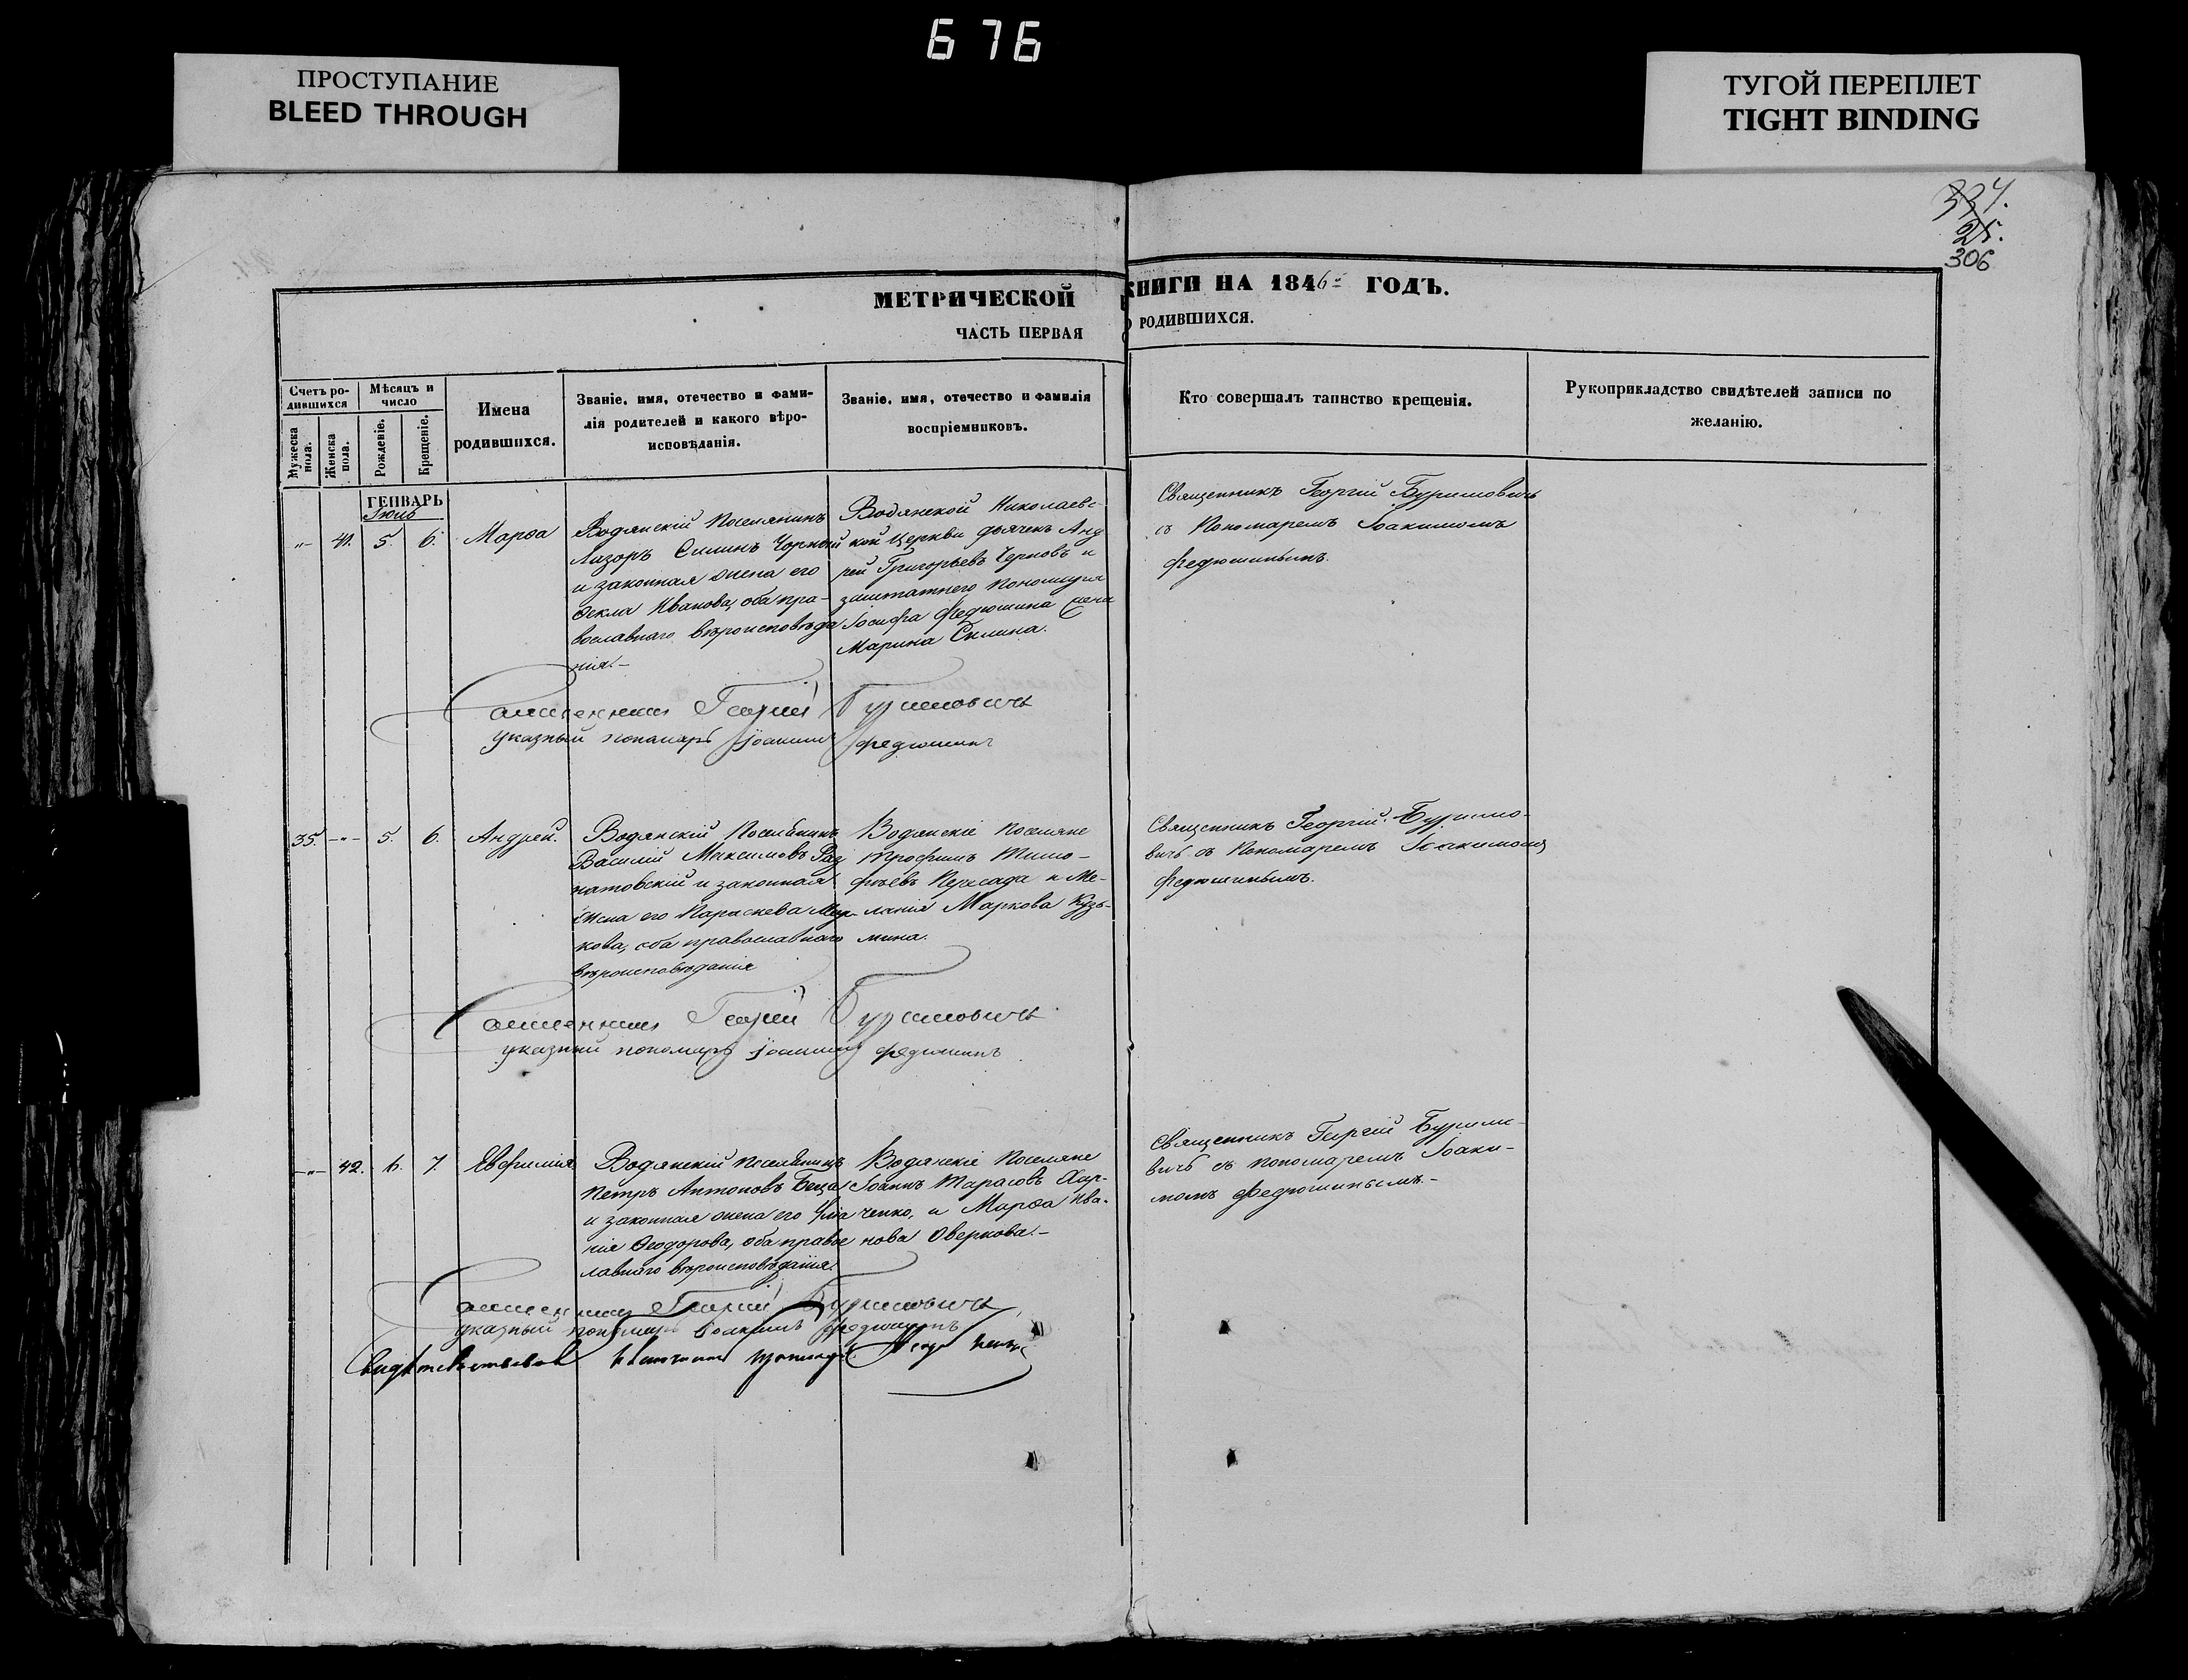 676
ПРОСТУПАНИЕ
BLEED THROUGH
ТУГОЙ ПЕРЕПЛЕТ
TIGHT BINDING
334.
25.
306
МЕТРИЧЕСКОЙ КНИГИ НА 1846 ГОДЪ.
ЧАСТЬ ПЕРВАЯ О РОДИВШИХСЯ.
Счетъ ро-
дившихся
Мѣсяцъ и
число
Мужеска
пола.
Женска
пола.
Рожденіе.
Крещеніе.
Имена
родившихся.
Званіе, имя, отечество и фами-
лія родителей и какого вѣро-
исповѣданія.
Званіе, имя, отечество и фамилія
воспріемниковъ.
Кто совершалъ таинство крещенія.
Рукоприкладство свидѣтелей записи по
желанію.
ГЕНВАРЬ
Іюль
-"- 41. 5. 6. Марѳа
Водянскій Поселянинъ
Лазорь Силинъ Чорный
и законная жена его
Ѳекла Иванова, оба пра-
вославнаго вѣроисповѣда
нія.-
Водянской Николаевс-
кой Церкви дьячекъ Анд
рей Григорьевъ Черновъ и
заштатнего пономаря
Іосифа Федюшина жена
Марина Силина.
Священникъ Георгій Буримовичь
съ Пономаремъ Іоакимомъ
Федюшинымъ.
Священникъ Георгій Буримовичъ
указный пономарь Іоакимъ Федюшинъ
35. -"- 5. 6. Андрей.
Водянскій Поселянинъ
Василій Максимовъ
натовскій и законная
жена его Параскева Мар-
кова, оба православнаго
вѣроисповѣданія
Водянскіе Поселяне
Трофимъ Тимо-
фѣевъ Пересада и Ме-
ланія Маркова Кузь-
мина.
Священникъ Георгій Буримо-
вичь съ Пономаремъ Іоакимомъ
Федюшинымъ.
Священникъ Георгій Буримовичъ
указный пономарь Іоакимъ Федюшинъ
-"- 42. 6. 7. Евфимія
Водянскій поселянинъ
Петръ Антоновъ
и законная жена его Улія
нія Ѳеодорова, оба правос
лавнаго вѣроисповѣданія.
Водянскіе Поселяне
Іоаннъ Тарасовъ Хар-
ченко, и Марѳа Ива-
нова Оверкова.-
Священникъ Георгій Бурим
вичь съ пономаремъ Іоаки-
момъ Федюшинымъ.-
Священникъ Георгій Буримовичъ
указный пономарь Іоакимъ Федюшинъ
Свидѣтельствовалъ